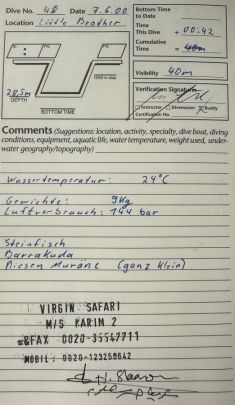 Dive No. 48 Date 7.6.00
Location Little Brother
Bottom Time
to Date
Time
This Dive + 00:42
Cumulative
Time =
Visibility 40m
Verification Signature
Instructor Divemaster Buddy
Certification No.
28,5m
DEPTH
BOTTOM TIME
Comments (Suggestions: location, activity, specialty, dive boat, diving
conditions, equipment, aquatic life, water temperature, weight used, under-
water geography/topography)
Wassertemperatur: 24°C
Gewichte: 9Kg
Luftverbrauch: 144 bar
Steinfisch
Barrakuda
Riesen Muräne (ganz klein)
VIRGIN SAFARI
M/S KARIM 2
&FAX 0020-35547711
MOBIL: 0020-123258642